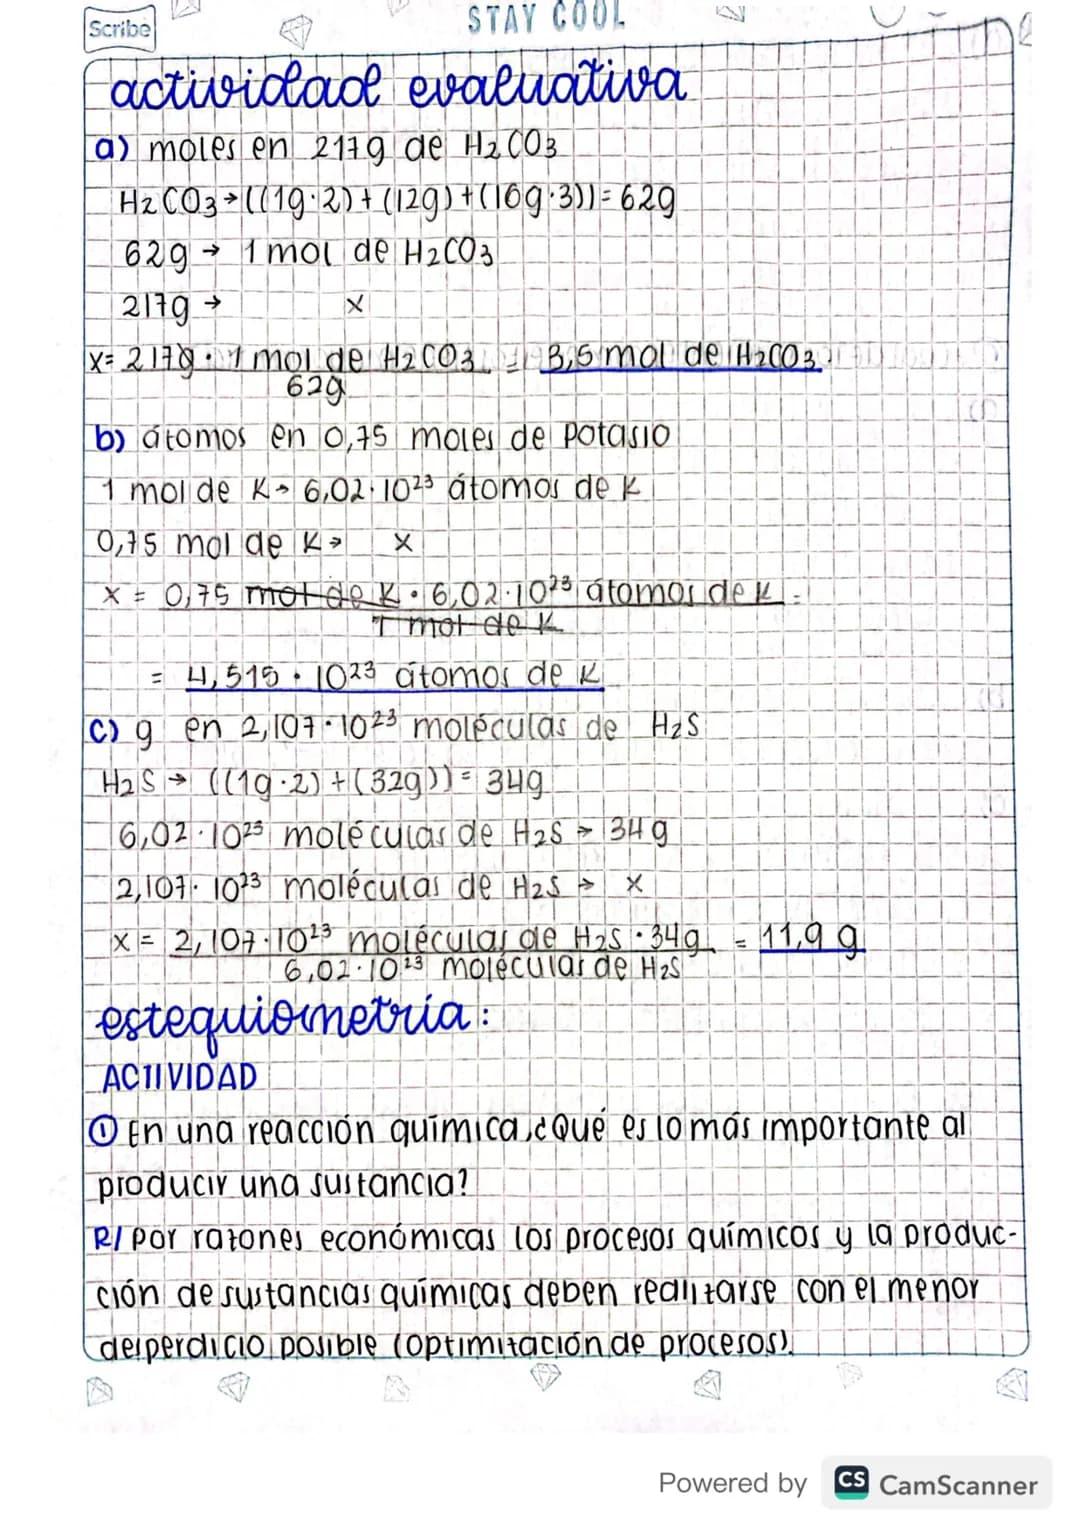 Scribe
STAY COOL
actividad evaluativa
a) moles en 217g de H₂CO₃
H₂CO₃→((1g·2)+(12g)+(16g·3))=62g
62g → 1 mol de H₂CO₃
217g → x
x= 217g · 1 mol de H₂CO₃ = 3,5 mol de H₂CO₃
62g
b) átomos en 0,75 moles de potasio
1 mol de K→ 6,02·10²³ átomos de K
0,75 mol de K→ x
x = 0,75 mol de K · 6,02·10²³ átomos de K =
1 mol de K
= 4,515 · 10²³ átomos de K
c) g en 2,107·10²³ moléculas de H₂S
H₂S → ((1g·2)+(32g))= 34g
6,02·10²³ moléculas de H₂S → 34g
2,107·10²³ moléculas de H₂S → x
x = 2,107·10²³ moléculas de H₂S · 34g = 11,9 g
6,02·10²³ moléculas de H₂S
estequiometría:
ACTIVIDAD
① En una reacción química,¿Qué es lo más importante al
producir una sustancia?
R/ Por razones económicas los procesos químicos y la produc-
ción de sustancias químicas deben realizarse con el menor
desperdicio posible (optimización de procesos).
Powered by CS CamScanner